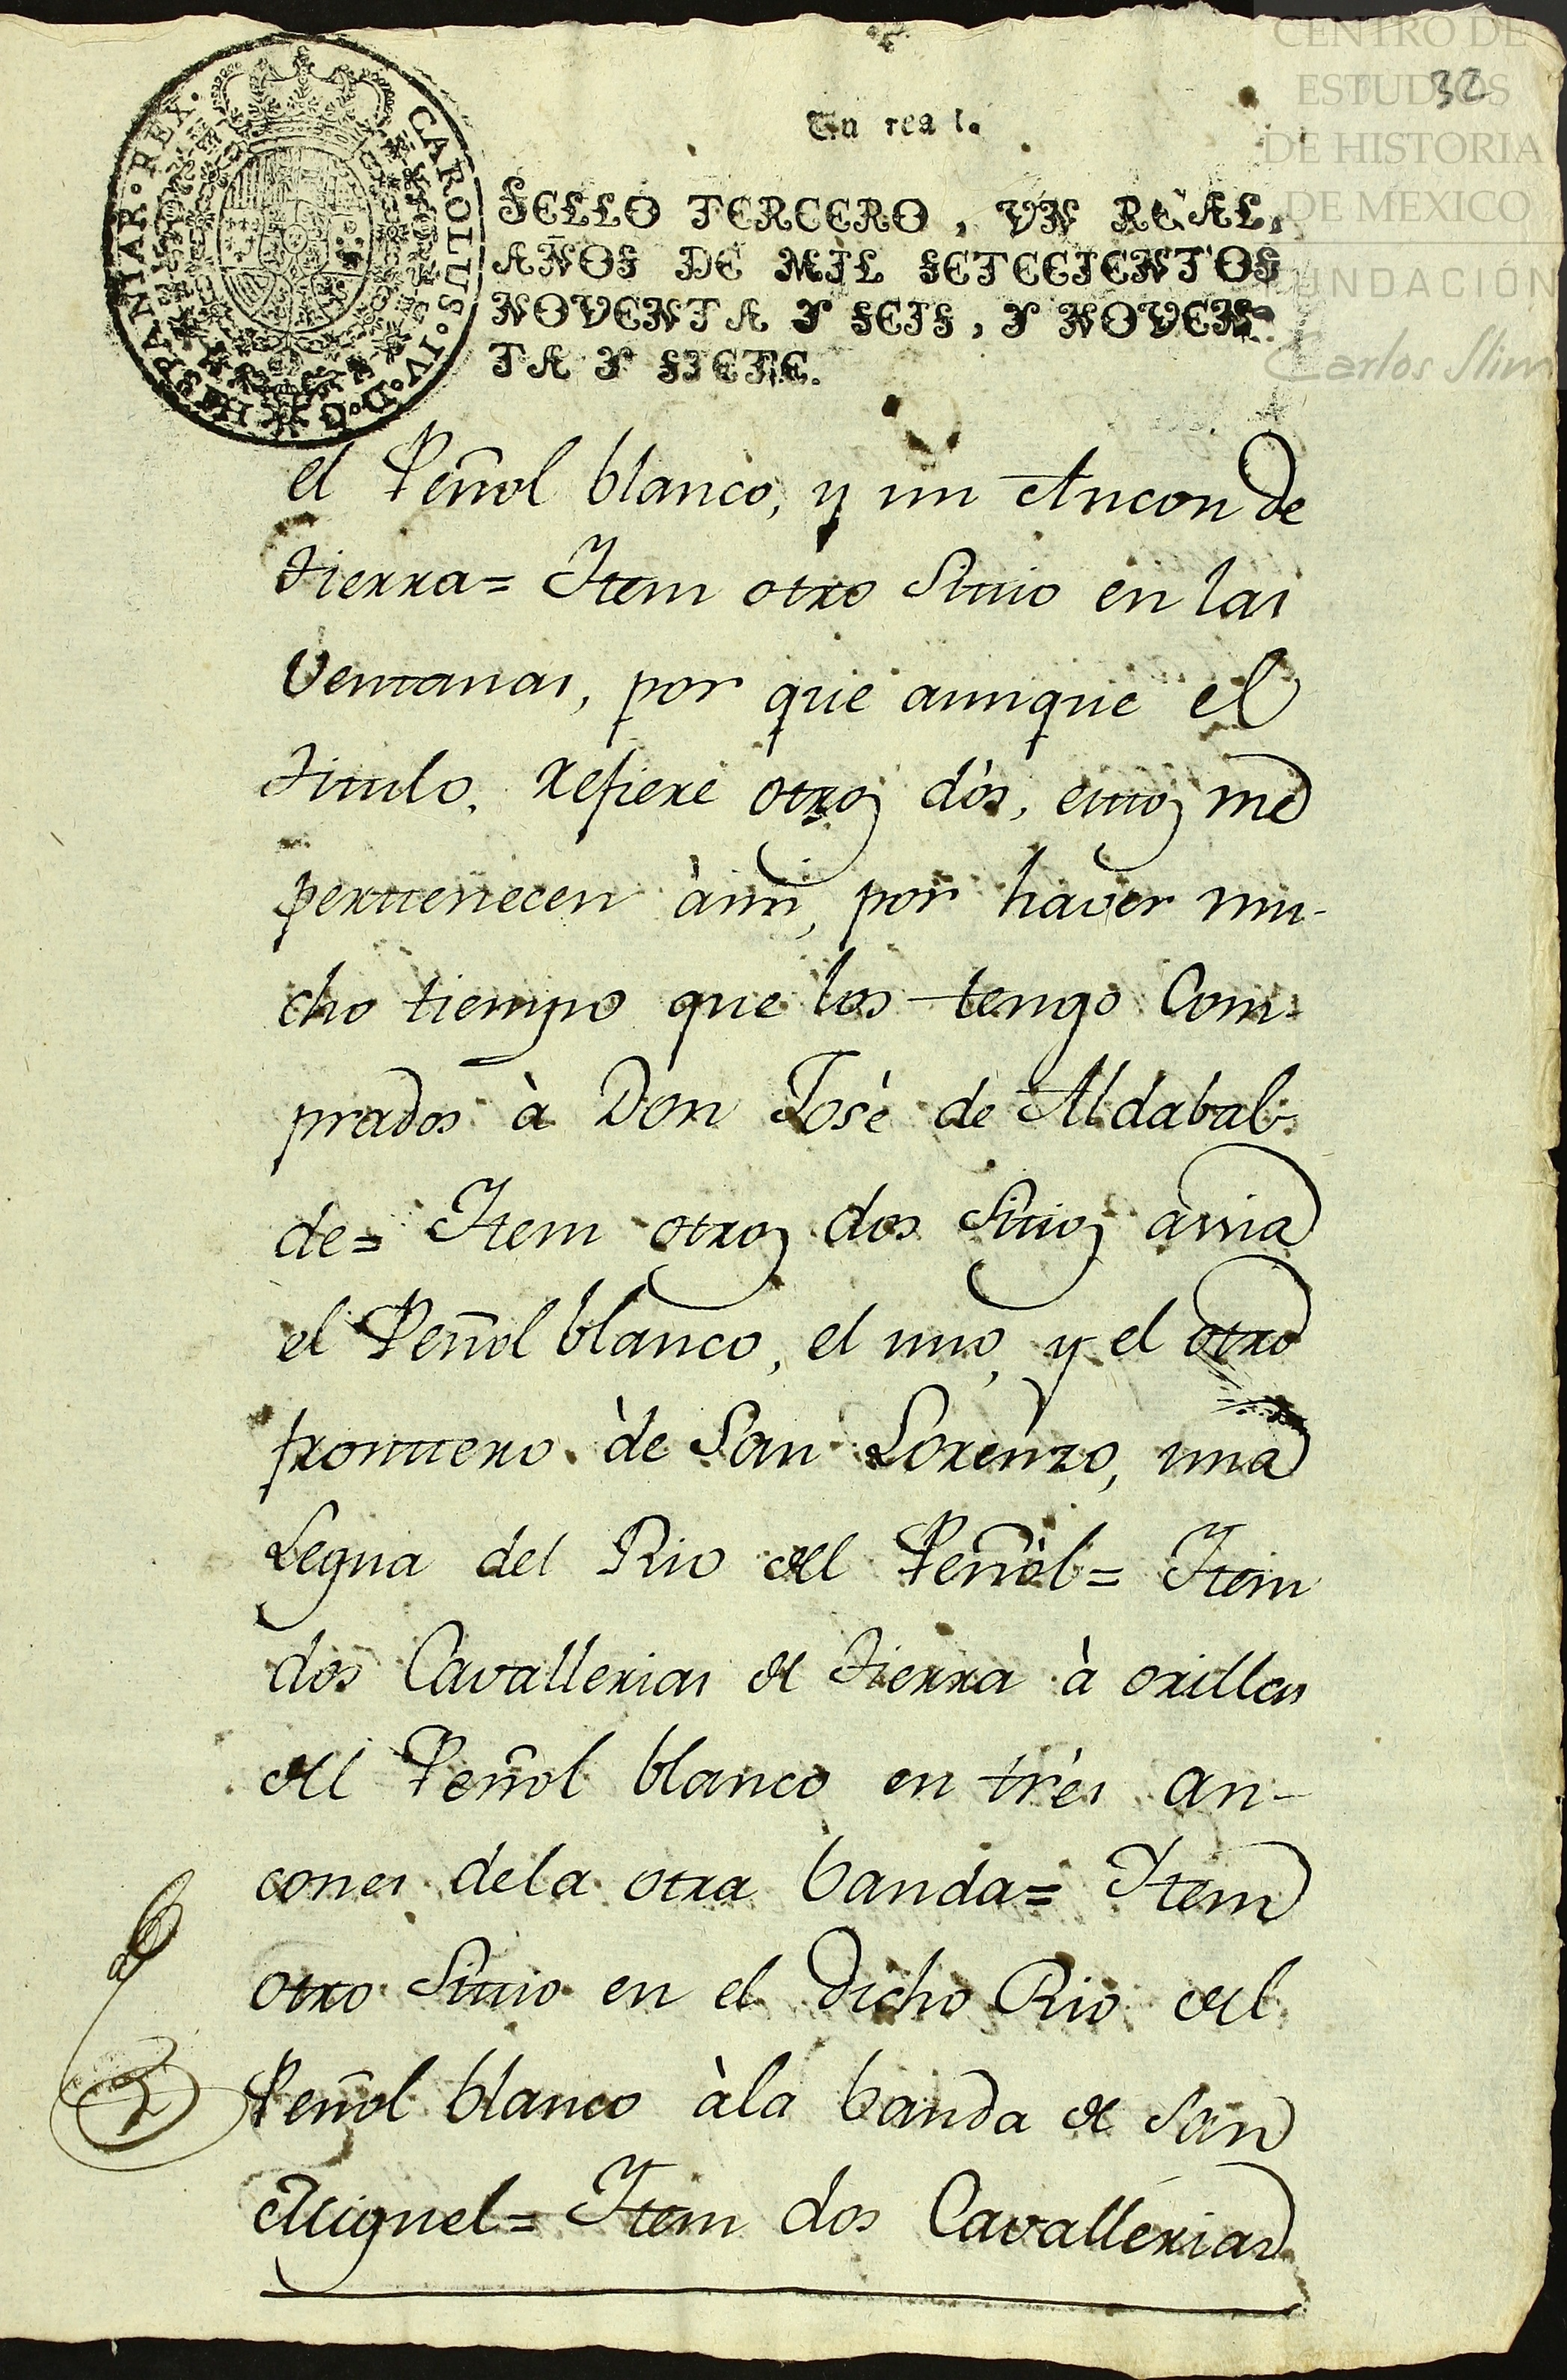 32
Un real.
CAROLUS·IV·D·G·HISPANIAR·REX·
SELLO TERCERO, VN REAL,
AÑOS DE MIL SETECIENTOS
NOVENTA Y SEIS, Y NOVEN-
TA Y SIETE.
el Peñol blanco, y un Ancon de
tierra= Item otro Sitio en las
Ventanas, por que aunque el
titulo, refiere otros dòs, estos me
pertenecen àmi, por haver mu-
cho tiempo que los tengo Com-
prados à Don Josè de Aldabal-
de= Item otros dos Sitios àrria
el Peñol blanco, el uno, y el otro
frontero de San Lorenzo, una
Legua del Rio del Peñol= Item
dos Cavallerias de tierra à orillas
del Peñol blanco en tres an-
cones dela otra banda= Item
otro Sitio en el dicho Rio del
Peñol blanco àla banda de San
Miguel= Item dos Cavallerias
CENTRO DE
ESTUDIOS
DE HISTORIA
DE MEXICO
FUNDACIÓN
Carlos Slim